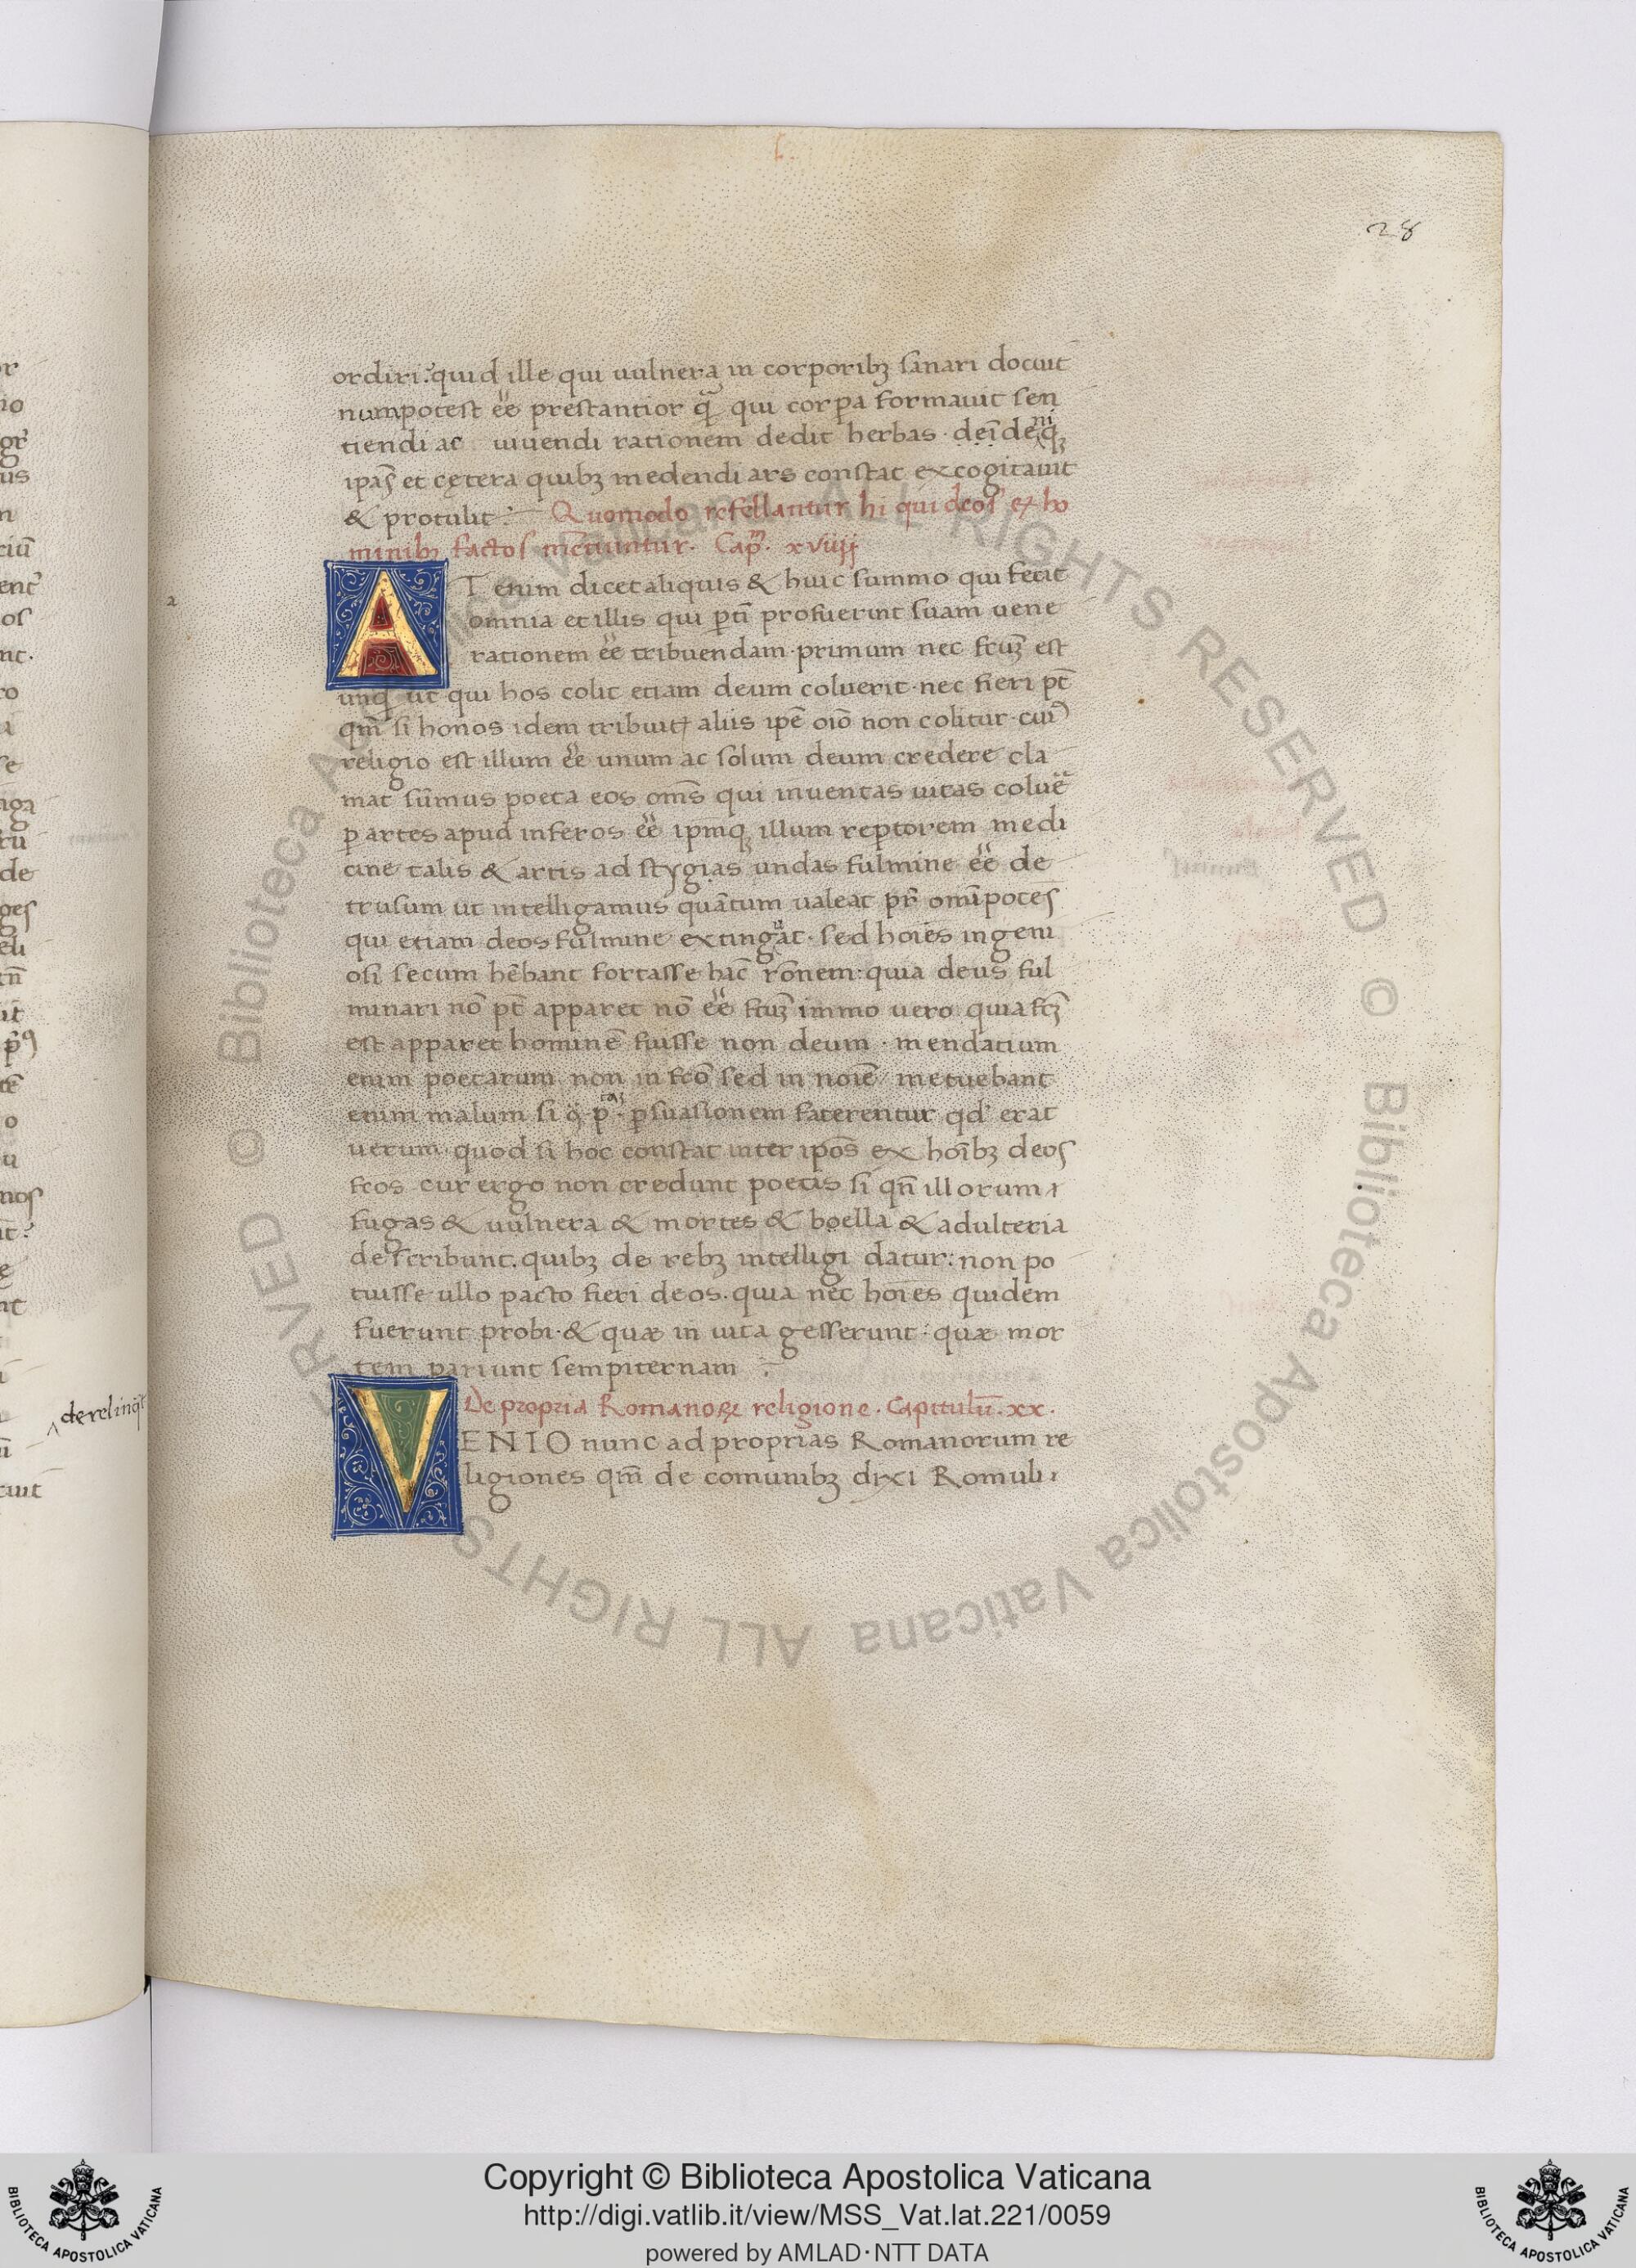 28
ordiri? quid ille qui uulnera in corporibꝫ sanari docuit
num potest ēē prestantior q̃ qui corpa formauit sen
tiendi ac uiuendi rationem dedit herbas
ipas et cętera quibꝫ medendi ars constat excogitauit
& protulit: Quomodo refellantur hi qui deos ex ho
minibꝫ factos Cap. xviiij
AT enim dicet aliquis & huic summo qui fecit
omnia et illis qui ꝑtĩ profuerint suam uene
rationem ēē tribuendam · primum nec fctuꝫ est
unq̃ ut qui hos colit etiam deum coluerit · nec fieri pt̄
qm̄ si honos idem tribuitr aliis ipē oīō non colitur · cuiꝰ
religio est illum ēē unum ac solum deum credere cla
mat sūmus poeta eos om̄s qui inuentas uitas coluē
ꝑ artes apud inferos ēē ipmqꝫ illum reptorem medi
cine talis & artis ad stygias undas fulmine ēē de
trusum ut intelligamus quātum ualeat pr̄ omīpotēs
qui etiam deos fulmine extinguat · sed hoīes ingeni
osi secum hēbant fortasse hāc rōnem: quia deus ful
minari nō pt̄ apparet nō ēē fctuꝫ immo uero quia fctꝫ
est apparet hominē fuisse non deum · mendatium
enim poetarum non in fctō sed in noīe metuebant
enim malum si ꝑsuasionem faterentur qd' erat
uerum · quod si hoc constat inter ipōs ex hoībꝫ deos
fctos cur ergo non credunt poetis si qn̄ illorum
fugas & uulnera & mortes & boella & adulteria
describunt. quibꝫ de rebꝫ intelligi datur: non po
tuisse ullo pacto fieri deos · quia nec hoīes quidem
fuerunt probi · & quæ in uita gesserunt: quæ mor
tem pariunt sempiternam
De propria Romanoꝝ religione. Capitulū. xx.
VENIO nunc ad proprias Romanorum re
ligiones qm̄ de comunibꝫ dixi Romuli
derelinq̄t
© Biblioteca Apostolica Vaticana ALL RIGHTS RESERVED © Biblioteca Apostolica Vaticana ALL RIGHTS RESERVED
Copyright © Biblioteca Apostolica Vaticana
http://digi.vatlib.it/view/MSS_Vat.lat.221/0059
powered by AMLAD·NTT DATA
BIBLIOTECA APOSTOLICA VATICANA
BIBLIOTECA APOSTOLICA VATICANA